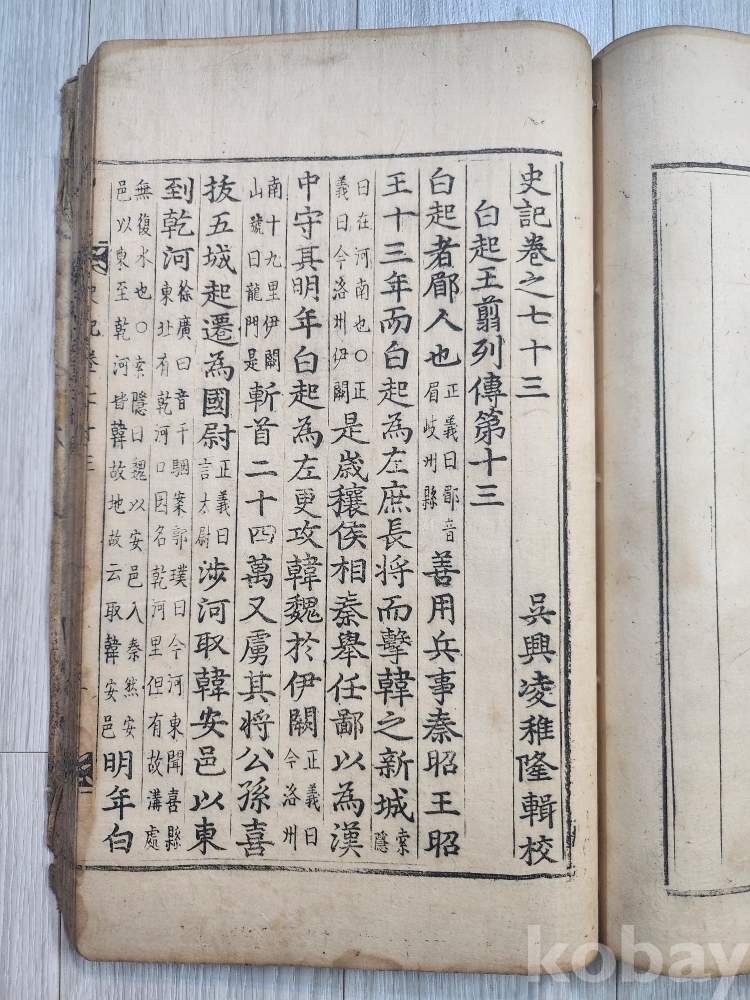 史記卷之七十三 吳興凌稚隆輯校
白起王翦列傳第十三
白起者郿人也正義曰郿音眉岐州縣善用兵事秦昭王昭
王十三年而白起為左庶長將而擊韓之新城索隱
曰在河南也○正義曰今洛州伊闕是歲穰侯相秦舉任鄙以為漢
中守其明年白起為左更攻韓魏於伊闕正義曰今洛州
南十九里伊闕山號曰龍門是斬首二十四萬又虜其將公孫喜
拔五城起遷為國尉正義曰言太尉涉河取韓安邑以東
到乾河徐廣曰音干駰案郭璞曰今河東聞喜縣東北有乾河口因名乾河里但有故溝處
無復水也○索隱曰魏以安邑入秦然安邑以東至乾河皆韓故地故云取韓安邑明年白
史記卷七十三
kobay